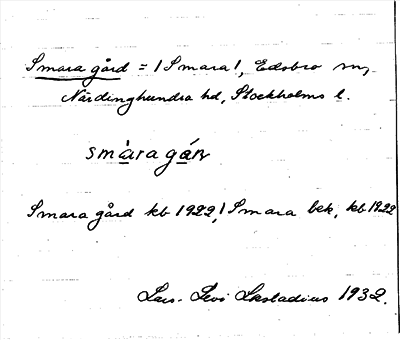 Smara gård = / Smara /, Edsbro sn,
Närdinghundra hd, Stockholms l.
smàragáṇ
Smara gård kb 1922, / Smara bek, kb 1922
Lars-Levi Læstadius 1932.